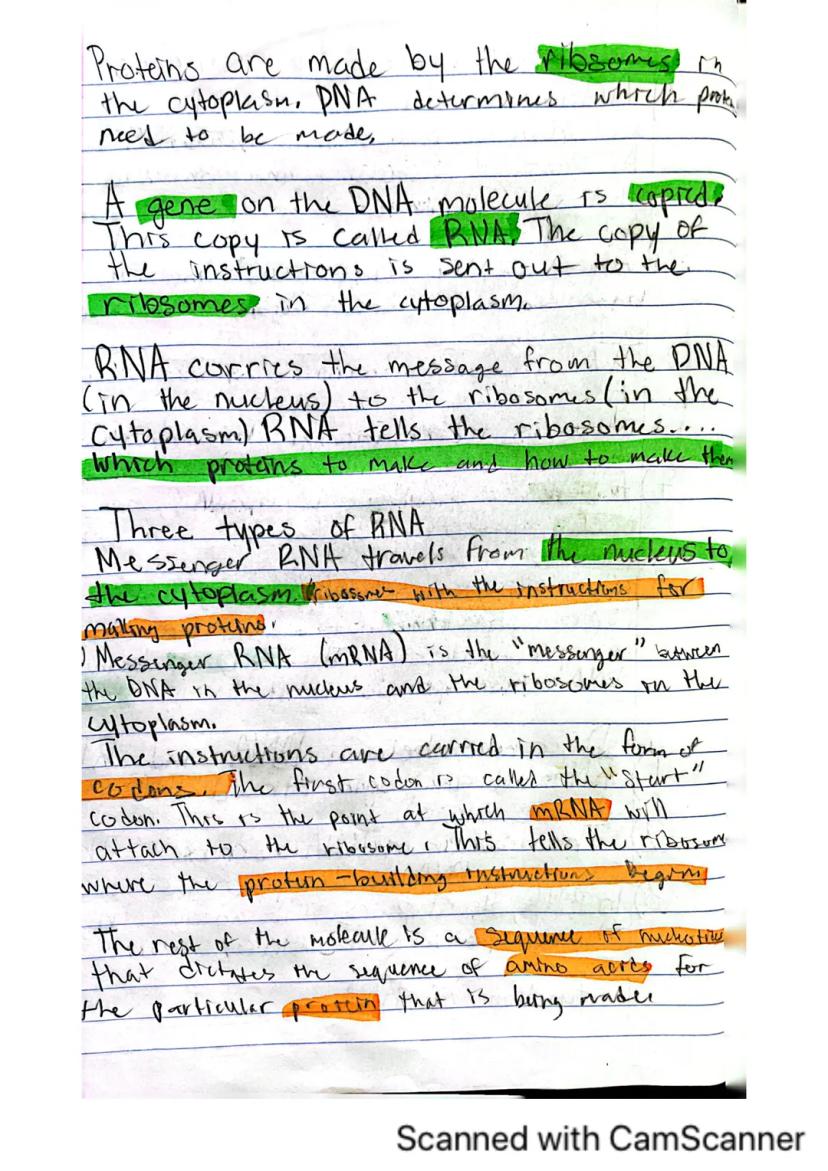 Proteins are made by the ribosomes in
the cytoplasm. DNA determines which prote
need to be made.
A gene on the DNA molecule is copied.
This copy is called RNA. The copy of
the instructions is sent out to the
ribosomes in the cytoplasm.
RNA carries the message from the DNA
(in the nucleus) to the ribosomes (in the
cytoplasm) RNA tells the ribosomes....
which proteins to make and how to make them
Three types of RNA
Messenger RNA travels from the nucleus to
the cytoplasm. ribosome with the instructions for
making proteins.
) Messenger RNA (mRNA) is the "messenger" between
the DNA in the nucleus and the ribosomes in the
cytoplasm.
The instructions are carried in the form of
codons. The first codon is called the "Start"
codon. This is the point at which mRNA will
attach to the ribosome. This tells the ribosom
where the protein-building instructions begin
The rest of the molecule is a sequence of
that dictates the sequence of amino acids for
the particular protein that is being made.
Scanned with CamScanner